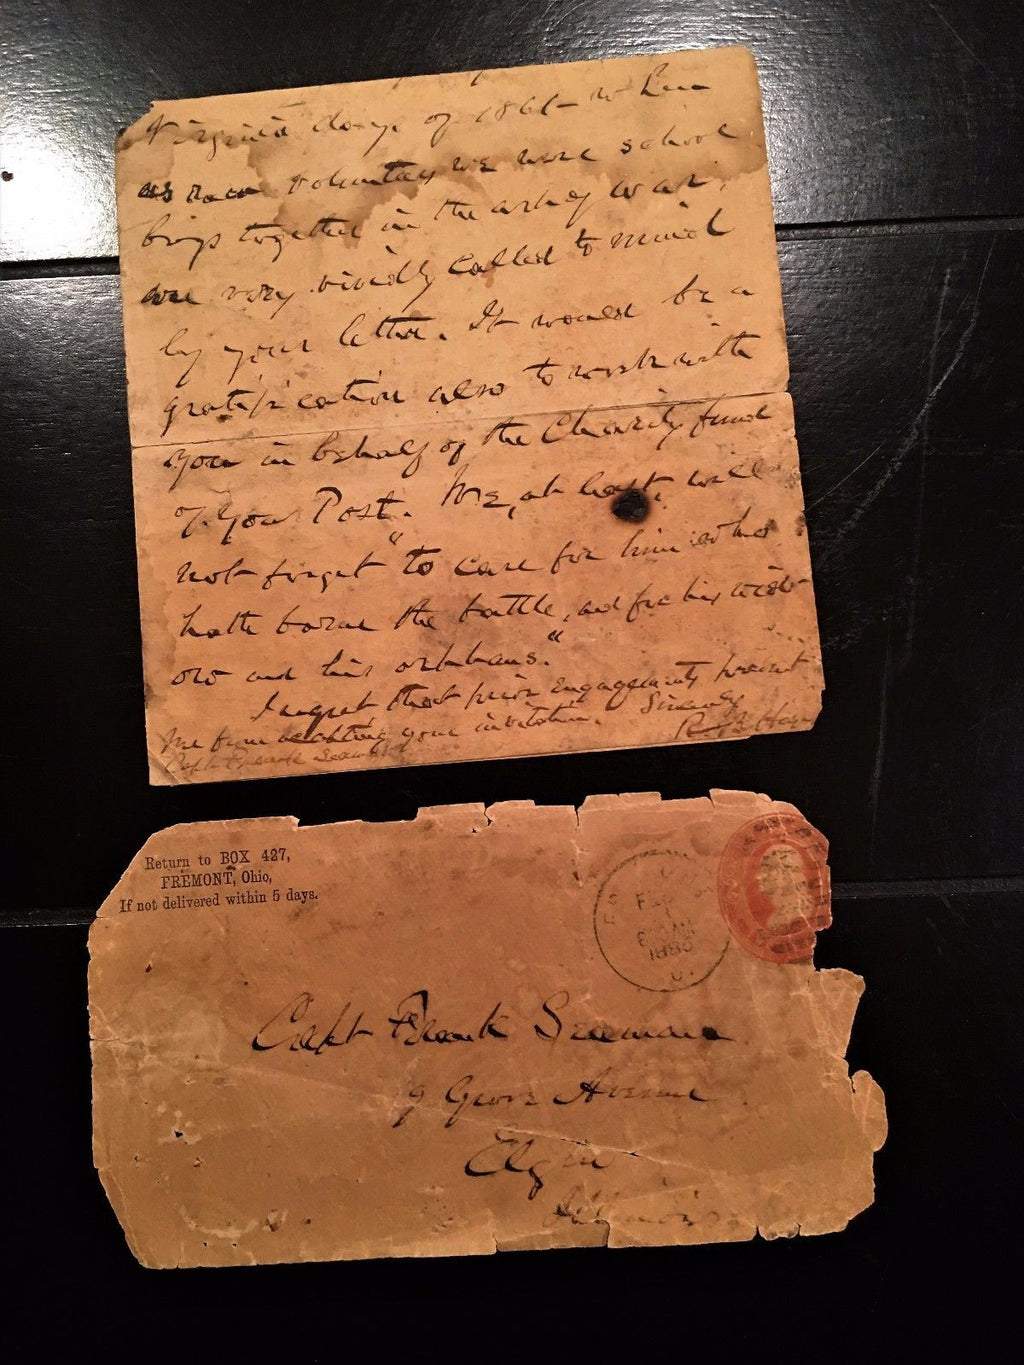 Virginia days of 1861 - when
as raw volunteers we were school
boys together in the art of war,
are very vividly called to mind
by your letter. It would be a
gratification also to work with
you in behalf of the Charity fund
of your Post. We, at least, will
not forget "to care for him who
hath borne the battle, and for his wid-
ow and his orphans."
I regret that prior engagements prevent
me from accepting your invitation. Sincerely
R B Hayes
Capt Frank Seaman
Return to BOX 427,
FREMONT, Ohio,
If not delivered within 5 days.
FEB
1
AM
188
O.
Capt Frank Seaman
9 Grove Avenue
Elgin
Illinois